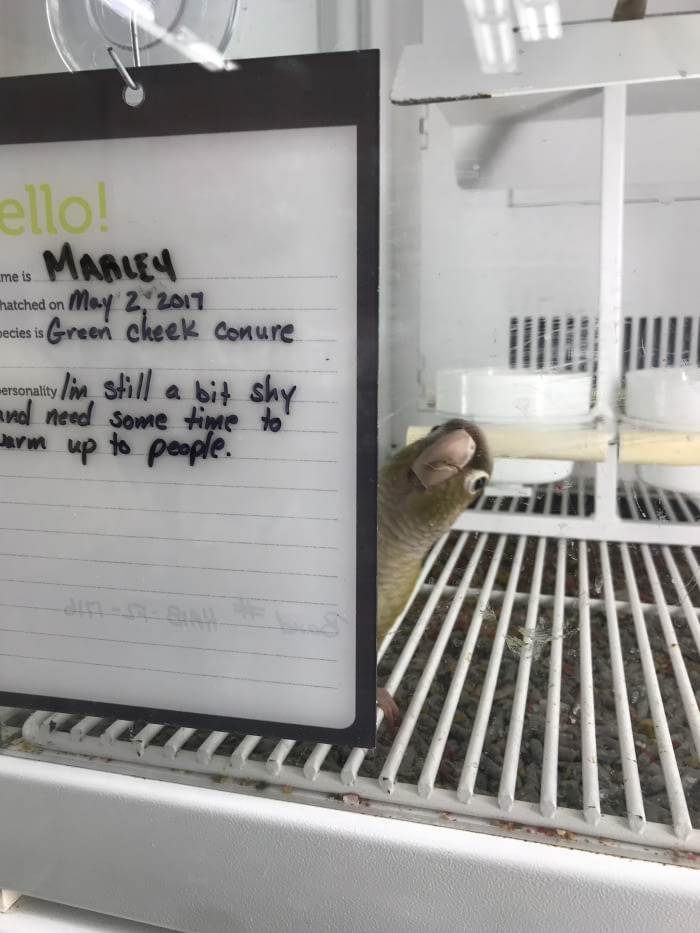 ello!
me is MARLEY
hatched on May 2, 2017
pecies is Green cheek conure
ersonality I'm still a bit shy
and need some time to
warm up to people.
Band # HA18-FL-1716